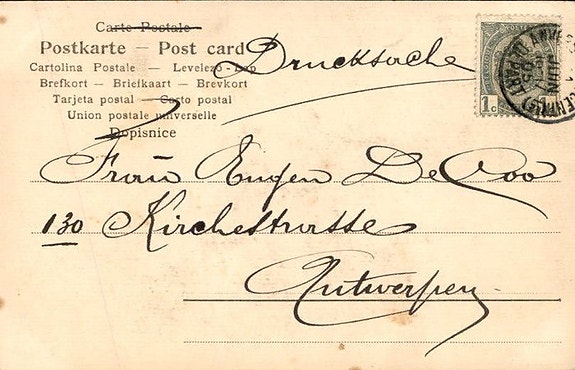 Carte Postale
Postkarte — Post card
Cartolina Postale — Levelező-Lap
Brefkort — Briefkaart — Brevkort
Tarjeta postal — Carto postal
Union postale universelle
Dopisnice
Drucksache
1 c
Frau Eugen De Coo
130 Kirchestrasse
Antwerpen